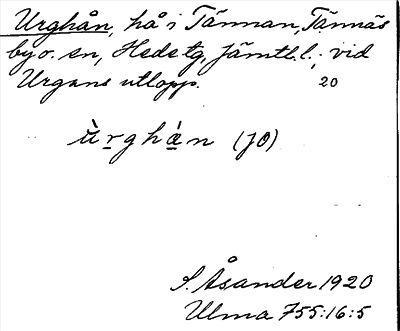 Urghån, hå i Tännan, Tännäs
by o. sn, Hede tg, Jämtl. l.; vid
Urgans utlopp. 20
ùrghån (JO)
S. Åsander 1920
Ulma 755:16:5